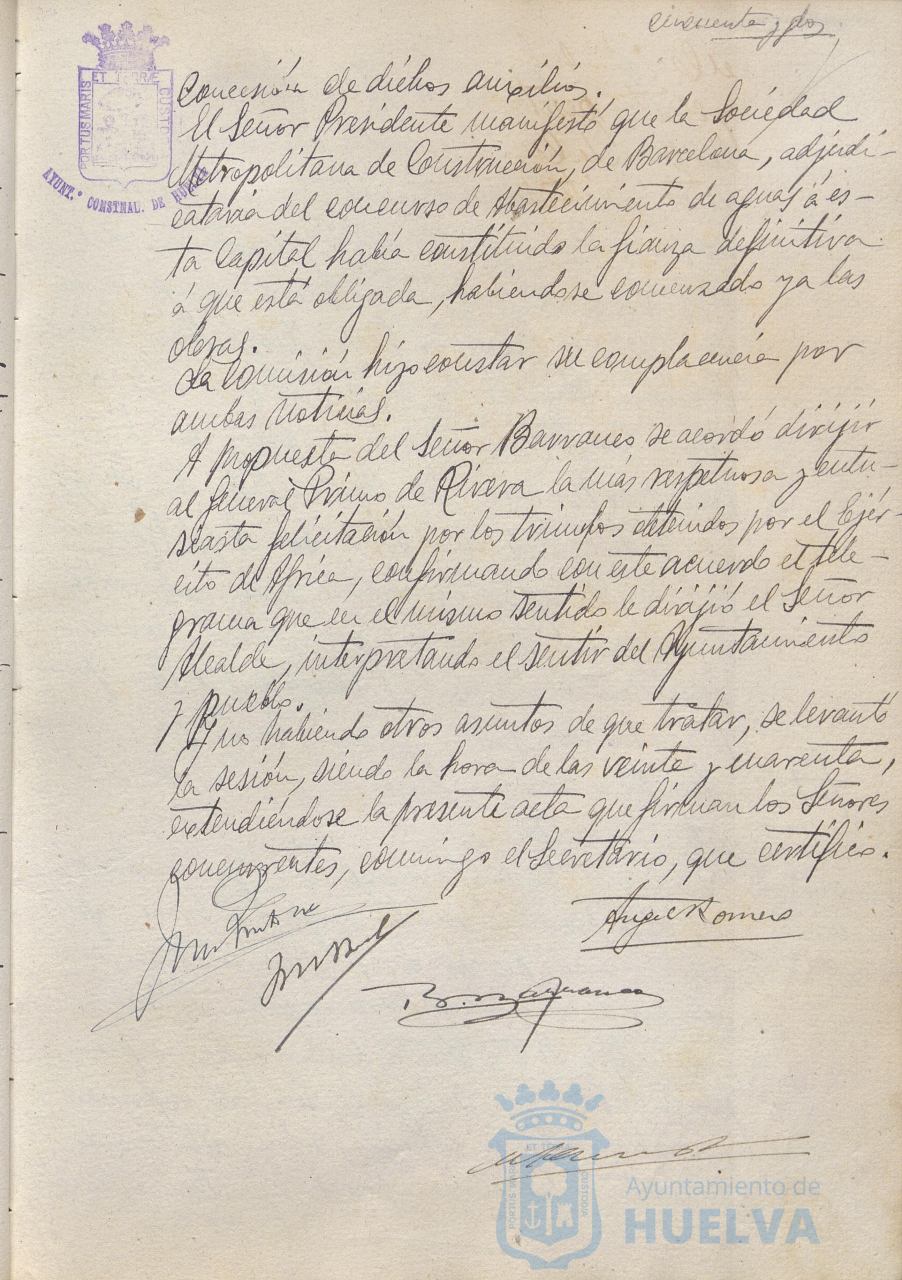 cincuenta y dos
PORTUS MARIS ET TERRÆ CUSTO
AYUNT.º CONSTNAL. DE HUELVA
Concesión de dichos auxilios.
El Señor Presidente manifestó que la Sociedad
Metropolitana de Construcción, de Barcelona, adjudi-
cataria del concurso de Abastecimiento de aguas á és-
ta Capital había constituido la fianza definitiva
á que está obligada, habiendose comenzado ya las
obras.
La Comisión hizo constar su complacencia por
ambas noticias.
A propuesta del Señor Barranco se acordó dirijir
al General Primo de Rivera la más respetuosa y entu-
siasta felicitación por los triunfos obtenidos por el Ejér-
cito de Africa, confirmando con este acuerdo el tele-
grama que en el mismo sentido le dirijió el Señor
Alcalde, interpretando el sentir del Ayuntamiento
y pueblo.
Y no habiendo otros asuntos de que tratar, se levantó
la sesión, siendo la hora de las veinte y cuarenta,
extendiéndose la presente acta que firman los Señores
concurrentes, conmigo el Secretario, que certifico.
Angel Romero
B. Barranco
PORTUS MARIS ET TERRÆ CUSTODIA
Ayuntamiento de
HUELVA